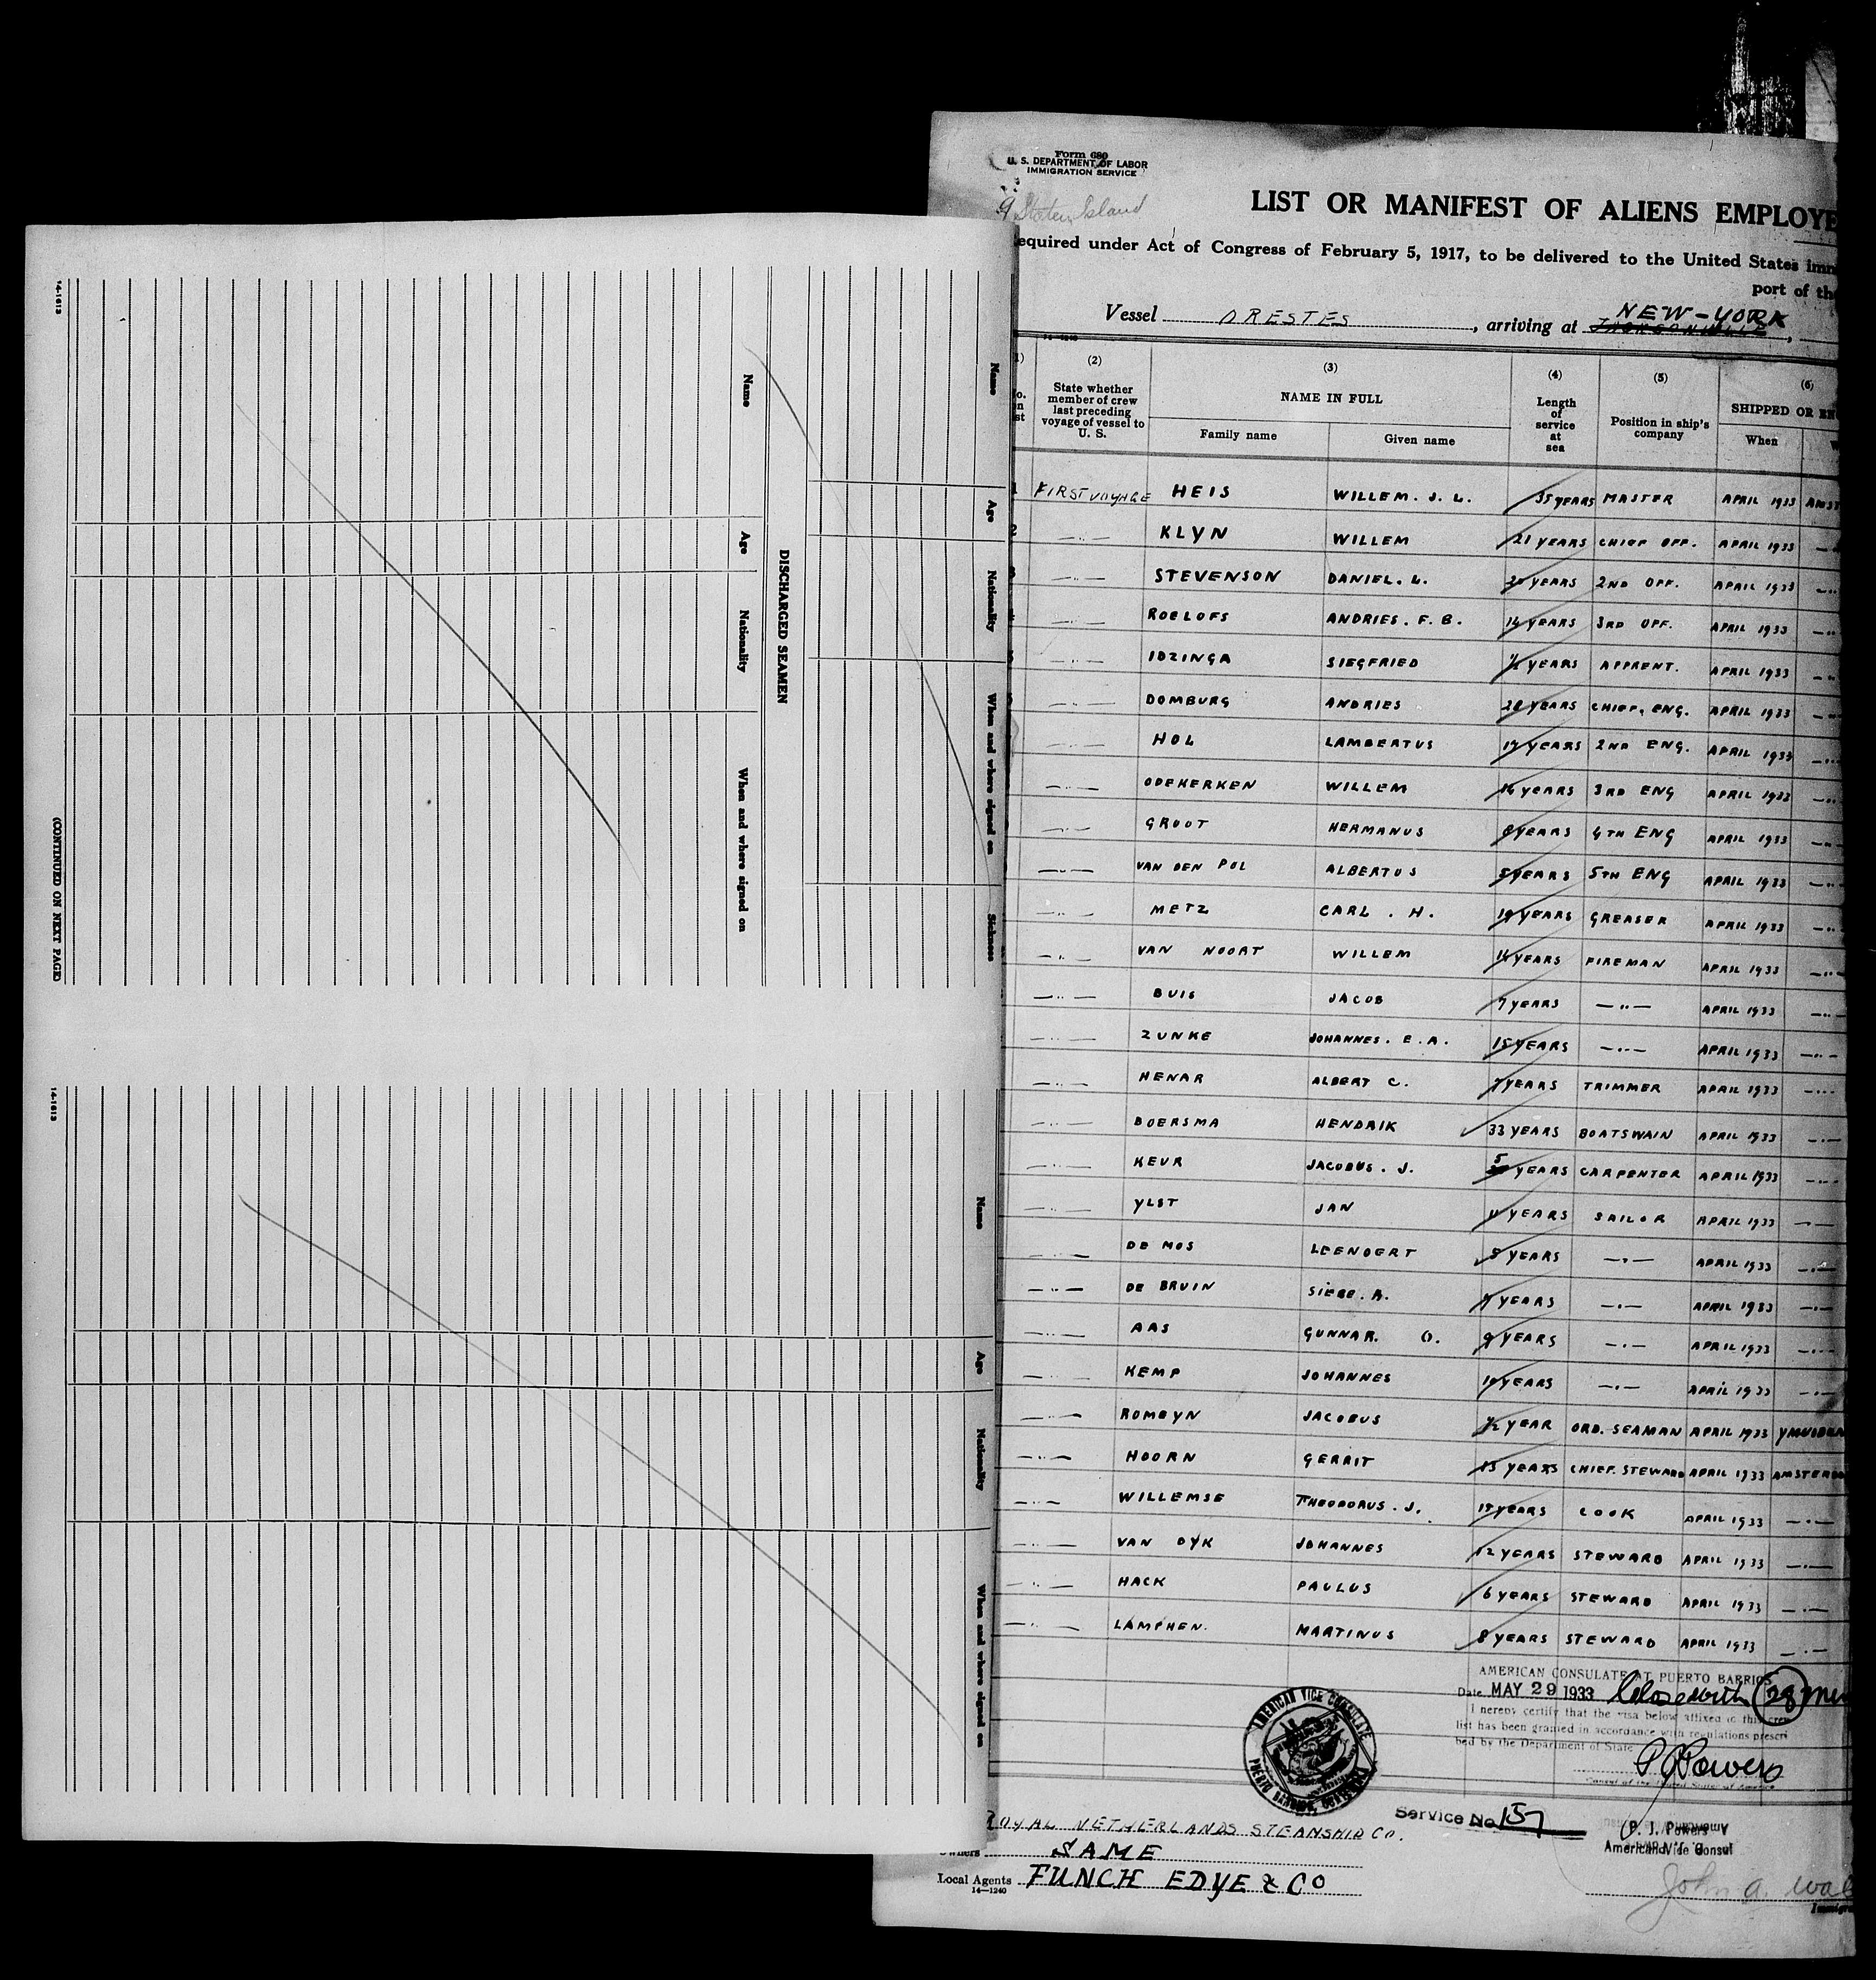 Form 680
U. S. DEPARTMENT OF LABOR
IMMIGRATION SERVICE
Staten Island
LIST OR MANIFEST OF ALIENS EMPLOYE
equired under Act of Congress of February 5, 1917, to be delivered to the United States imm
port of the
NEW-YORK
Vessel ORESTES, arriving at JACKSONVILLE,
(2) (3) (4) (5) (6)
State whether member of crew last preceding voyage of vessel to U. S.
NAME IN FULL
Family name Given name
Length of service at sea
Position in ship's company
SHIPPED OR EN
When
1 FIRST VOYAGE HEIS WILLEM. J. L. 35 YEARS MASTER APRIL 1933 AMST
2 —··— KLYN WILLEM 21 YEARS CHIEF OFF. APRIL 1933 —··
—··— STEVENSON DANIEL. L. YEARS 2ND OFF. APRIL 1933 —··
—··— ROELOFS ANDRIES. F. B. 14 YEARS 3RD OFF. APRIL 1933 —··
—··— IDZINGA SIEGFRIED ½ YEARS APPRENT. APRIL 1933 —··
—··— DOMBURG ANDRIES 28 YEARS CHIEF, ENG. APRIL 1933 —··
—··— HOL LAMBERTUS 17 YEARS 2ND ENG. APRIL 1933 —··
—··— ODEKERKEN WILLEM 16 YEARS 3RD ENG APRIL 1933 —··
—··— GROOT HERMANUS 8 YEARS 4TH ENG APRIL 1933 —··
—··— VAN DEN POL ALBERTUS 5 YEARS 5TH ENG APRIL 1933 —··
—··— METZ CARL. H. 19 YEARS GREASER APRIL 1933 —··
—··— VAN NOORT WILLEM 14 YEARS FIREMAN APRIL 1933 —··
—··— BUIS JACOB 7 YEARS —··— APRIL 1933 —··
—··— ZUNKE JOHANNES. E. A. 15 YEARS —··— APRIL 1933 —··—
—··— HENAR ALBERT C. 7 YEARS TRIMMER APRIL 1933 —··
—··— BOERSMA HENDRIK 33 YEARS BOATSWAIN APRIL 1933 —·—
—··— KEUR JACOBUS. J. 5 YEARS CARPENTER APRIL 1933 —··
—··— YLST JAN 11 YEARS SAILOR APRIL 1933 —·—
—··— DE MOS LEENDERT 5 YEARS —·— APRIL 1933 —·—
—··— DE BRUIN SIEBE. A. YEARS —·— APRIL 1933 —·—
—··— AAS GUNNAR. O. 9 YEARS —·— APRIL 1933 —··
—··— KEMP JOHANNES 10 YEARS —·— APRIL 1933 —·—
—··— ROMBYN JACOBUS ½ YEAR ORD. SEAMAN APRIL 1933 YMUIDEN
—··— HOORN GERRIT 15 YEARS CHIEF. STEWARD APRIL 1933 AMSTERD
—··— WILLEMSE THEODORUS. J. 17 YEARS COOK APRIL 1933 —·—
—··— VAN DYK JOHANNES 12 YEARS STEWARD APRIL 1933 —·—
—··— HACK PAULUS 6 YEARS STEWARD APRIL 1933 —·—
—··— LAMPHEN. MARTINUS 8 YEARS STEWARD APRIL 1933 —·—
AMERICAN CONSULATE AT PUERTO BARRIOS
Date MAY 29 1933 Closed with (28)
I hereby certify that the visa below affixed to this crew
list has been granted in accordance with regulations prescri
bed by the Department of State
P J Powers
Consul of the United States of America
AMERICAN VICE CONSULATE
PUERTO BARRIOS, GUATEMALA
Service No 157
P. J. Powers
American Vice Consul
ROYAL NETHERLANDS STEAMSHIP CO.
Owners SAME
Local Agents FUNCH EDYE & CO
14—1240
John A. Wal
Name Age Nationality When and where signed on Sickness
DISCHARGED SEAMEN
Name Age Nationality When and where signed on
(CONTINUED ON NEXT PAGE)
14-1613
Name Age Nationality When and where signed on
14-1613